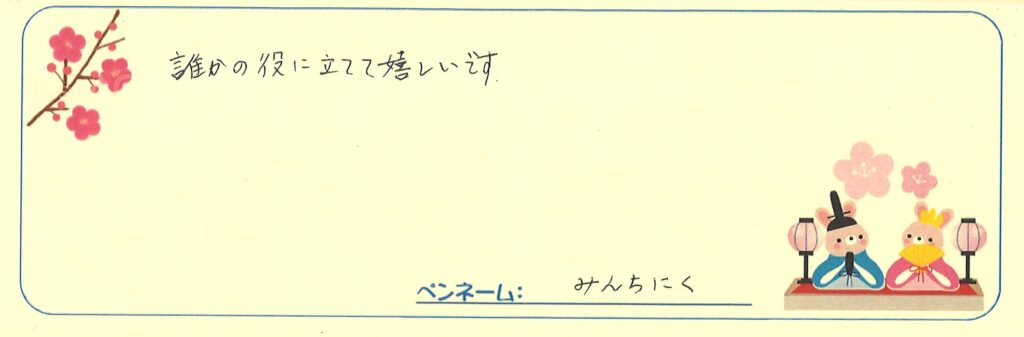 誰かの役に立てて嬉しいです.
ペンネーム: みんちにく